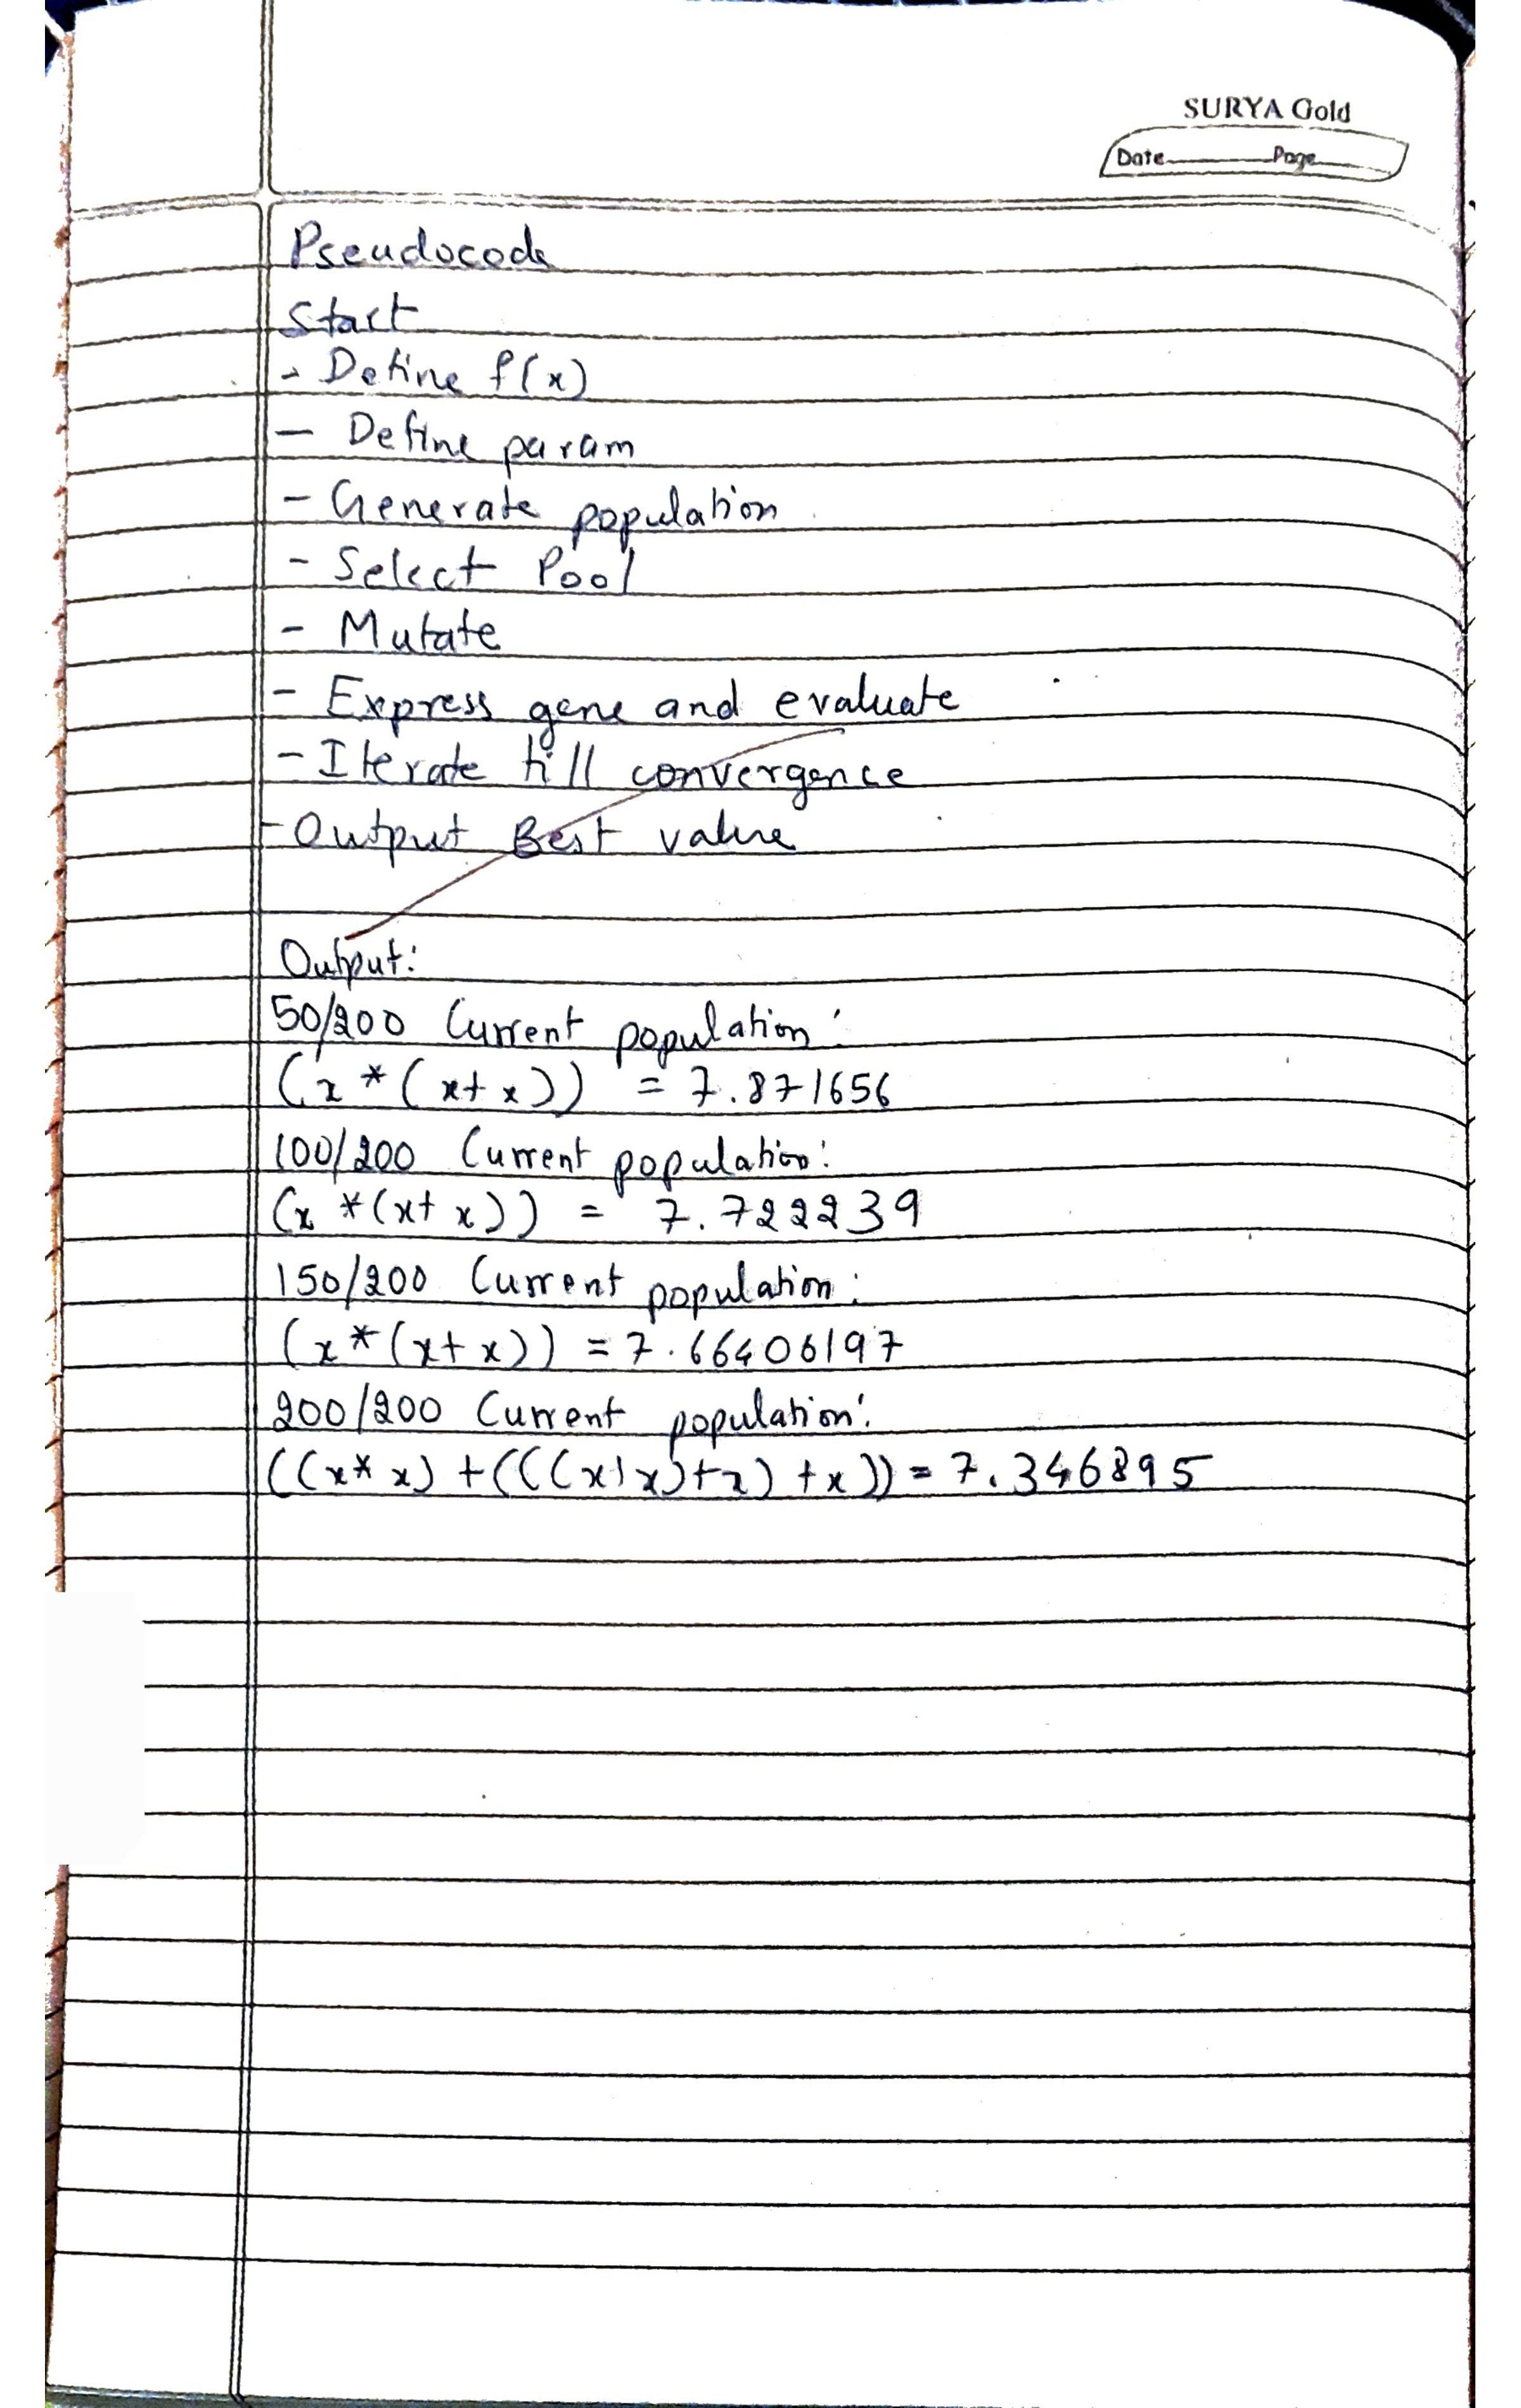 SURYA Gold
Date Page
Pseudocode
Start
- Define f(x)
- Define param
- Generate population
- Select Pool
- Mutate
- Express gene and evaluate
- Iterate till convergence
- Output Best value
Output:
50/200 Current population:
(x * (x+x)) = 7.871656
100/200 Current population:
(x * (x+x)) = 7.722239
150/200 Current population:
(x * (x+x)) = 7.66406197
200/200 Current population:
((x* x) + (((x/x)+x) +x)) = 7.346895